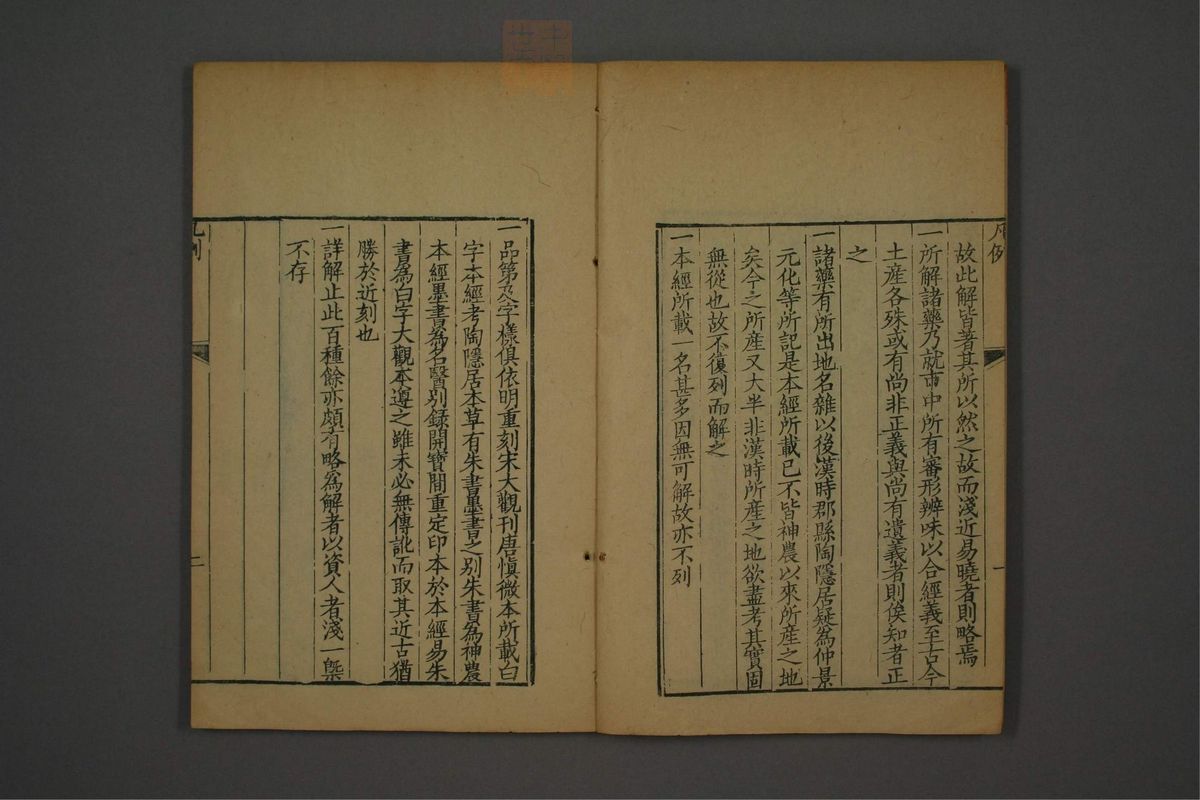 凡例
故此解皆著其所以然之故而淺近易曉者則略焉
一所解諸藥乃就市中所有審形辨味以合經義至古今
土産各殊或有尚非正義與尚有遺義者則俟知者正
之
一諸藥有所出地名雜以後漢時郡縣陶隱居疑為仲景
元化等所記是本經所載已不皆神農以來所産之地
矣今之所産又大半非漢時所産之地欲盡考其實固
無從也故不復列而解之
一本經所載一名甚多因無可解故亦不列
一
一品第及字樣俱依明重刻宋大觀刊唐愼微本所載白
字本經考陶隱居本草有朱書墨書之别朱書為神農
本經墨書為名醫别録開寶間重定印本於本經易朱
書為白字大觀本遵之雖未必無傳訛而取其近古猶
勝於近刻也
一詳解止此百種餘亦頗有略為解者以資人者淺一槩
不存
凡例
二